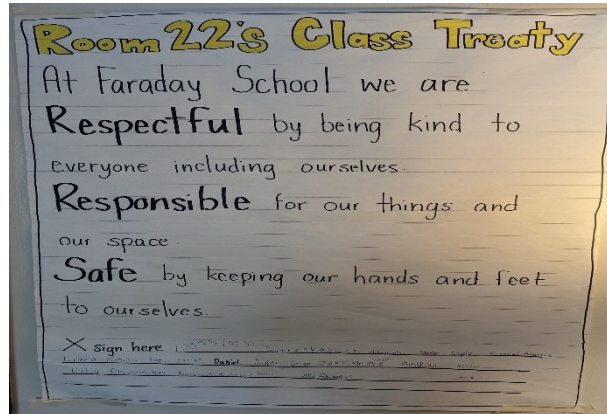 Room 22's Class Treaty
At Faraday School we are
Respectful by being kind to
everyone including ourselves.
Responsible for our things and
our space.
Safe by keeping our hands and feet
to ourselves.
X sign here
Daniel